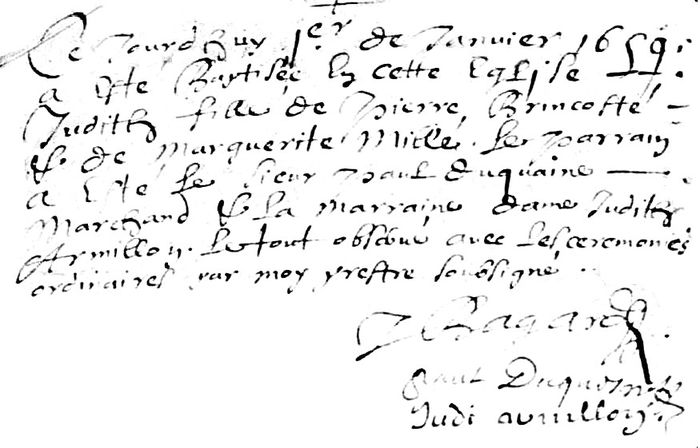 Ce Jourdhuy 1er de Janvier 1659
a este Baptisée En cette Eglise
Judith fille de Pierre Brincosté
& de Marguerite Mille. Le parrain
a esté le sieur paul duquaine
Marchand & la marraine dame Judith
Armillon. Le tout observé avec les ceremonies
ordinaires par moy prestre soubsigné
Bagard
paul Duquesne
Judi armillon